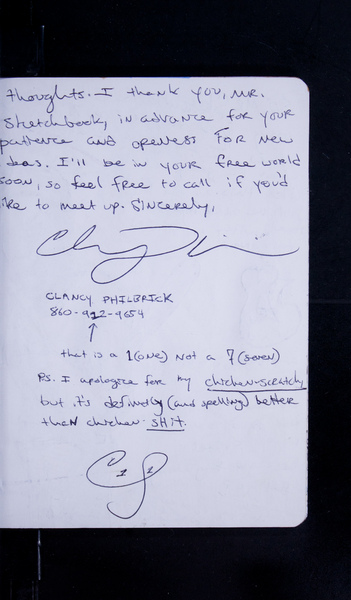 thoughts. I thank you, Mr.
Sketchbook, in advance for your
patience and openess for new
ideas. I'll be in your free world
soon, so feel free to call if you'd
like to meet up. Sincerely,
CLANCY PHILBRICK
860-912-9654
that is a 1 (one) not a 7 (seven)
Ps. I apologize for my chicken-scratch,
but it's definitly (and spelling) better
then chicken-shit.